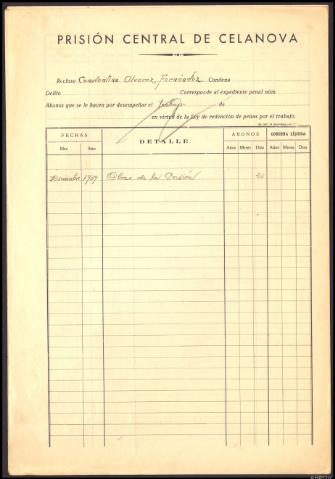 PRISIÓN CENTRAL DE CELANOVA
Recluso Constantino Alvarez Fernández Condena
Delito Corresponde al expediente penal núm.
Abonos que se le hacen por desempeñar el de
en virtud de la Ley de redención de penas por el trabajo.
FECHAS DETALLE ABONOS CONDENA LÍQUIDA
Mes Año Años Meses Días Años Meses Días
Diciembre 1939 Obras de la Prisión 20